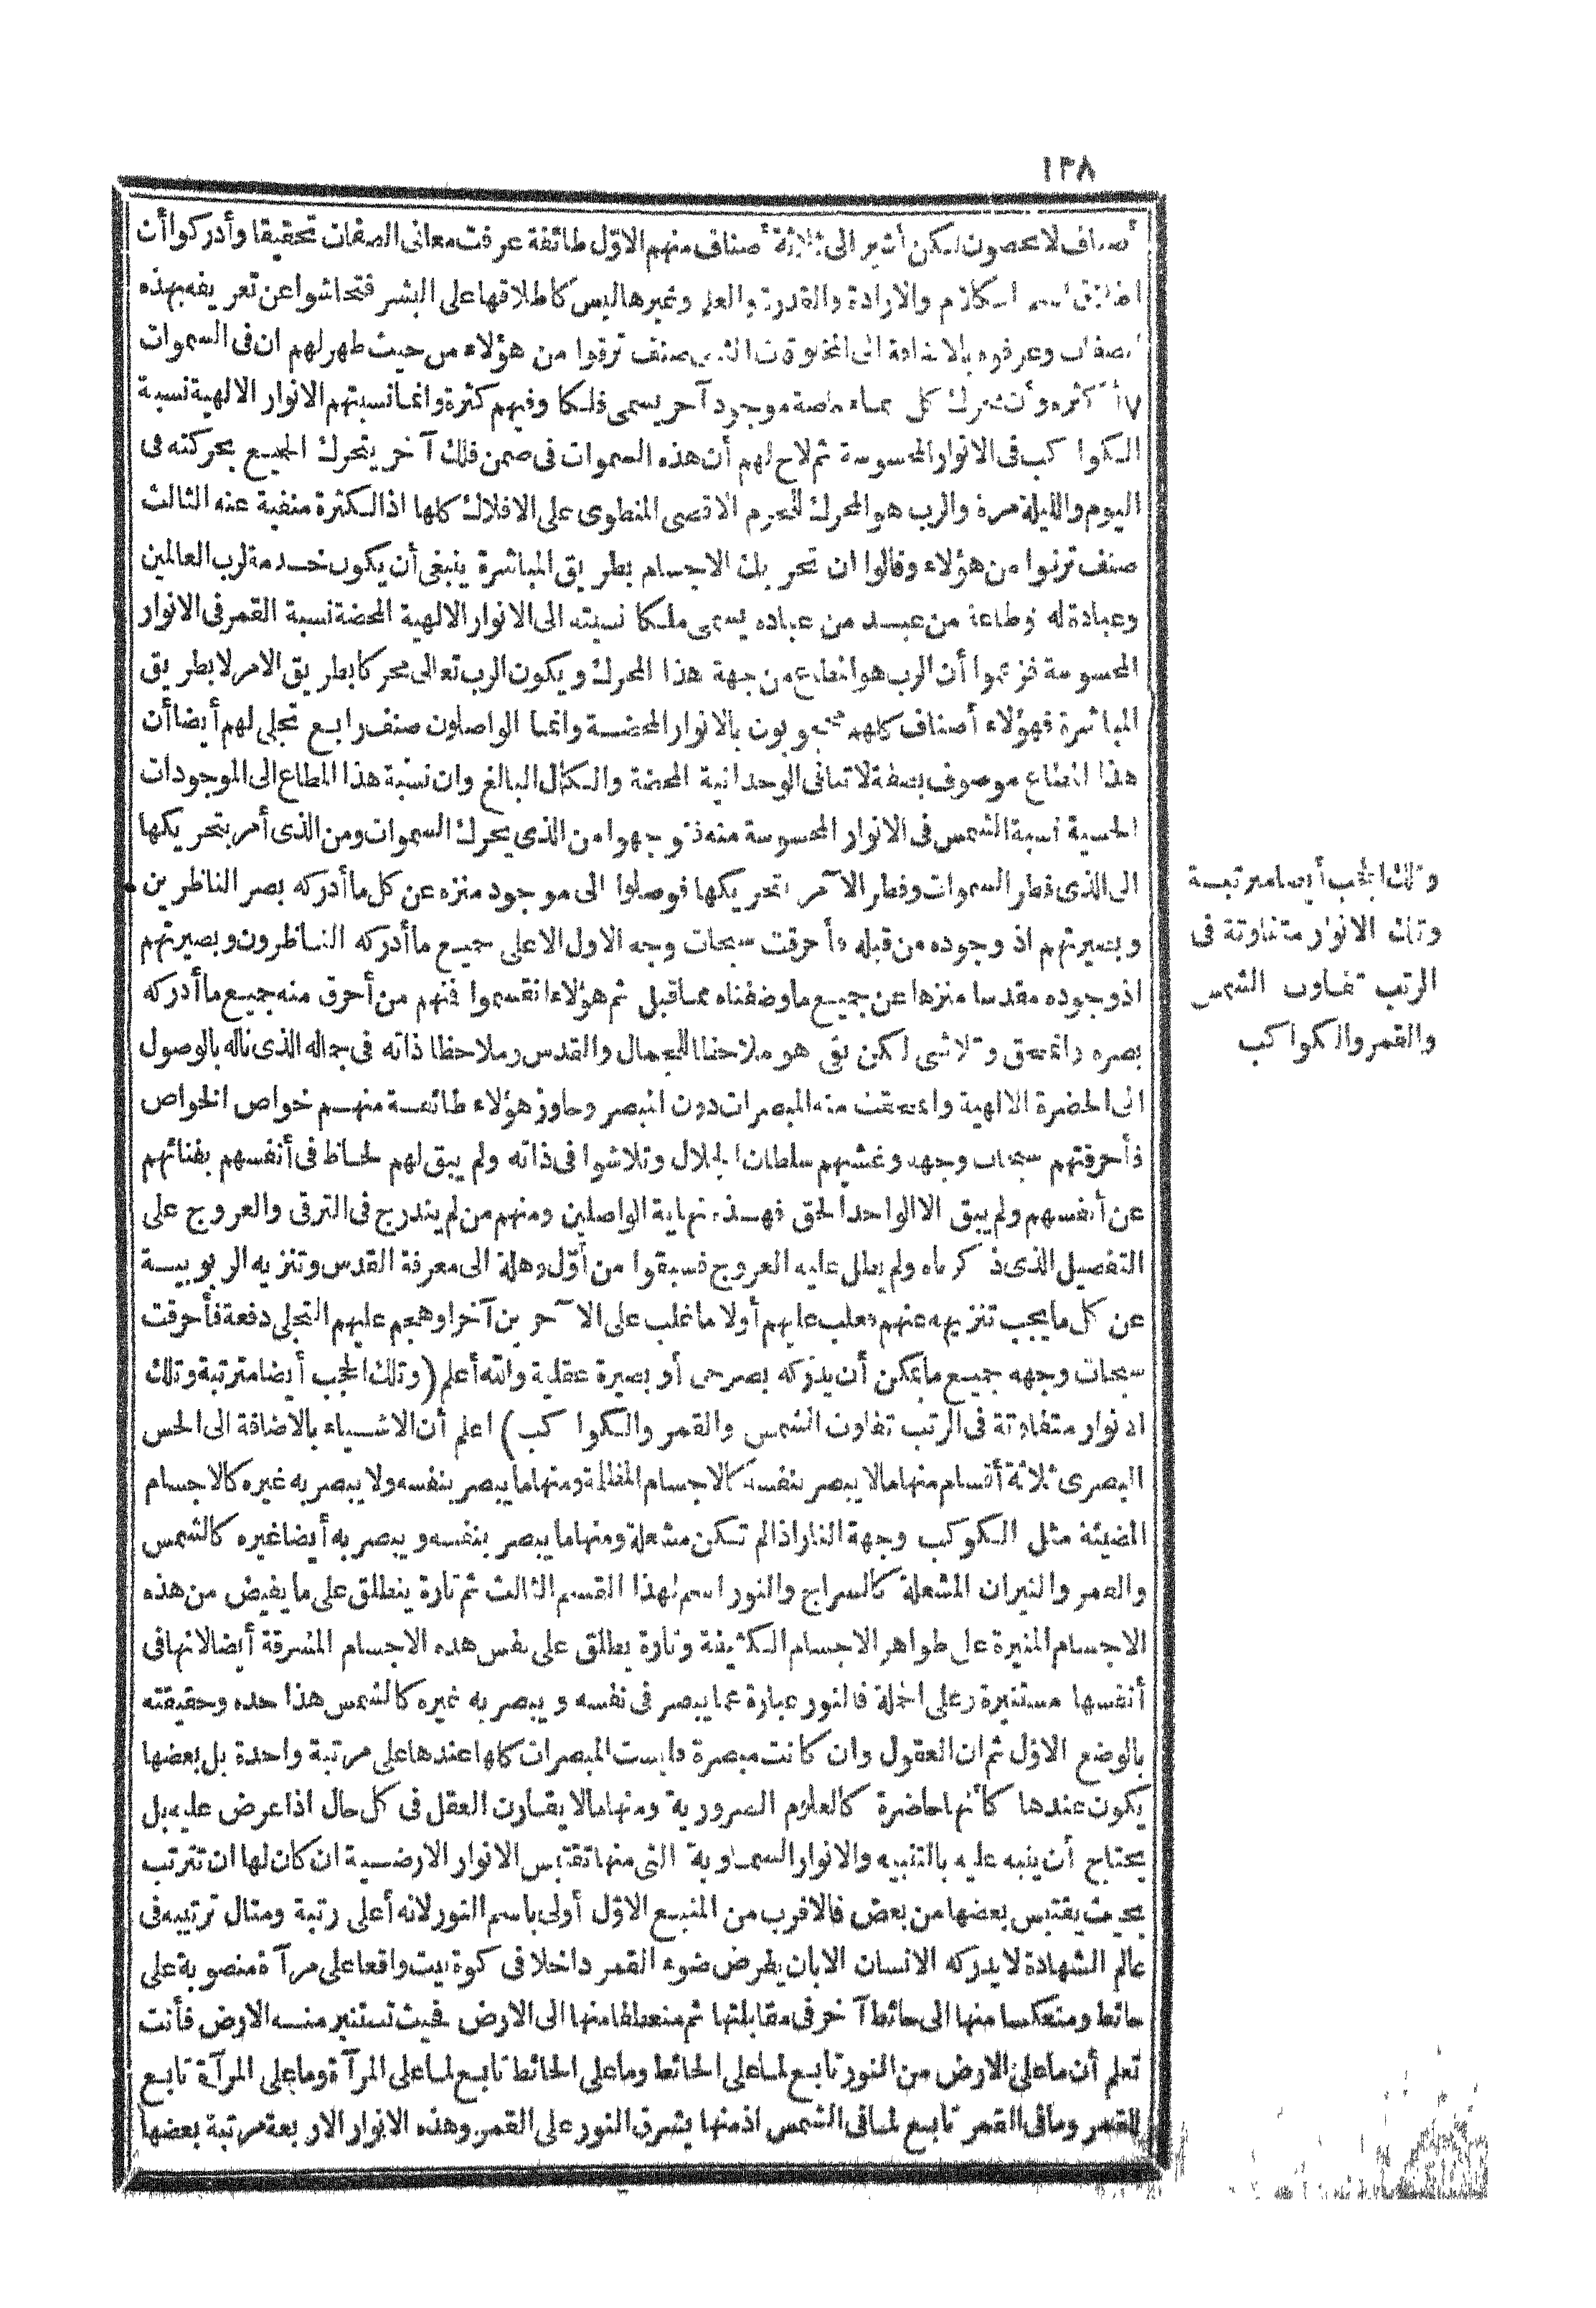 ١٣٨
أصناف لا يحصون لكن أشير الى ثلاثة أصناف منهم الاوّل طائفة عرفت معانى الصفات تحقيقا وأدركوا أن
اطلاق اسم الكلام والارادة والقدرة والعلم وغيرها ليس كاطلاقها على البشر فتحاشوا عن تعريفه بهذه
الصفات وعرفوه بالاضافة الى المخلوقات الثانى صنف ترقوا من هؤلاء من حيث ظهر لهم ان فى السموات
كثرة وأن محرك كل سماء خاصة موجود آخر يسمى فلكا وفيهم كثرة وانما نسبتهم الانوار الالهية نسبة
الكواكب فى الانوار المحسوسة ثم لاح لهم أن هذه السموات فى ضمن فلك آخر يتحرك الجميع بحركته فى
اليوم والليلة مرة والرب هو المحرك للجرم الاقصى المنطوى على الافلاك كلها اذ الكثرة منفية عنه الثالث
صنف ترقوا من هؤلاء وقالوا ان تحريك الاجسام بطريق المباشرة ينبغى أن يكون خدمة لرب العالمين
وعبادة له وطاعة من عبد من عباده يسمى ملكا نسبته الى الانوار الالهية المحضة نسبة القمر فى الانوار
المحسوسة فزعموا أن الرب هو المطاع من جهة هذا المحرك ويكون الرب تعالى محركا بطريق الامر لا بطريق
المباشرة فهؤلاء أصناف كلهم محجوبون بالانوار المحضة وانما الواصلون صنف رابع تجلى لهم أيضا أن
هذا المطاع موصوف بصفة لا تنافى الوحدانية المحضة والكمال البالغ وان نسبة هذا المطاع الى الموجودات
الحسية نسبة الشمس فى الانوار المحسوسة منه فتوجهوا من الذى يحرك السموات ومن الذى أمر بتحريكها
الى الذى فطر السموات وفطر الآمر بتحريكها فوصلوا الى موجود منزه عن كل ما أدركه بصر الناظرين
وبصيرتهم اذ وجوده من قبله فأحرقت سبحات وجه الاول الاعلى جميع ما أدركه الناظرون وبصيرتهم
اذ وجوده مقدسا منزها عن جميع ما وصفناه مما قبل ثم هؤلاء انقسموا فمنهم من أحرق منه جميع ما أدركه
بصره وانمحق وتلاشى لكن بقى هو ملاحظا للجمال والقدس وملاحظا ذاته فى جماله الذى ناله بالوصول
الى الحضرة الالهية وانمحقت منه المبصرات دون المبصر وجاوز هؤلاء طائفة منهم خواص الخواص
فأحرقتهم سبحات وجهه وغشيهم سلطان الجلال وتلاشوا فى ذاته ولم يبق لهم لحاظ فى أنفسهم بفنائهم
عن أنفسهم ولم يبق الا الواحد الحق فهذه نهاية الواصلين ومنهم من لم يندرج فى الترقى والعروج على
التفصيل الذى ذكرناه ولم يطل عليه العروج فسبقوا من أوّل وهلة الى معرفة القدس وتنزيه الربوبية
عن كل ما يجب تنزيهه عنهم فغلب عليهم أولا ما غلب على الآخرين آخرا وهجم عليهم التجلى دفعة فأحرقت
سبحات وجهه جميع ما يمكن أن يدركه بصر حى أو بصيرة عقلية والله أعلم (وتلك الحجب أيضا مترتبة وتلك
الانوار متفاوتة فى الرتب تفاوت الشمس والقمر والكواكب) اعلم أن الاشياء بالاضافة الى الحس
البصرى ثلاثة أقسام منها ما لا يبصر بنفسه كالاجسام المظلمة ومنها ما يبصر بنفسه ولا يبصر به غيره كالاجسام
المضيئة مثل الكوكب وجهة النار اذا لم تكن مشعلة ومنها ما يبصر بنفسه ويبصر به أيضا غيره كالشمس
والقمر والنيران المشعلة كالسراج والنور اسم لهذا القسم الثالث ثم تارة ينطلق على ما يفيض من هذه
الاجسام المنيرة على ظواهر الاجسام الكثيفة وتارة يطلق على نفس هذه الاجسام المشرقة أيضا لانها فى
أنفسها مستنيرة وعلى الجملة فالنور عبارة عما يبصر فى نفسه ويبصر به غيره كالشمس هذا حده وحقيقته
بالوضع الاوّل ثم ان العقول وان كانت مبصرة فليست المبصرات كلها عندها على مرتبة واحدة بل بعضها
يكون عندها كأنها حاضرة كالعلوم الضرورية ومنها ما لا يقارن العقل فى كل حال اذا عرض عليه بل
يحتاج أن ينبه عليه بالتنبيه والانوار السماوية التى منها تقتبس الانوار الارضية ان كان لها ان تترتب
بحيث يقتبس بعضها من بعض فالاقرب من المنبع الاوّل أولى باسم النور لانه أعلى رتبة ومثال ترتيبه فى
عالم الشهادة لا يدركه الانسان الا بان يفرض ضوء القمر داخلا فى كوة بيت واقعا على مرآة منصوبة على
حائط ومنعكسا منها الى حائط آخر فى مقابلتها ثم منعطفا منها الى الارض بحيث تستنير منه الارض فأنت
تعلم أن ما على الارض من النور تابع لما على الحائط وما على الحائط تابع لما على المرآة وما على المرآة تابع
للقمر وما فى القمر تابع لما فى الشمس اذ منها يشرق النور على القمر وهذه الانوار الاربعة مرتبة بعضها
وتلك الحجب أيضا مترتبة
وتلك الانوار متفاوتة فى
الرتب تفاوت الشمس
والقمر والكواكب